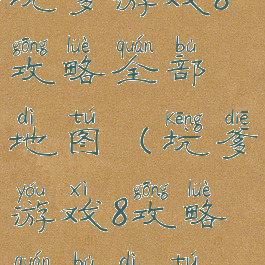 坑爹游戏8
gōng lüè quán bù
攻略全部
dì tú kēng diē
地图(坑爹
yóu xì gōng lüè
游戏8攻略
quán bù dì tú